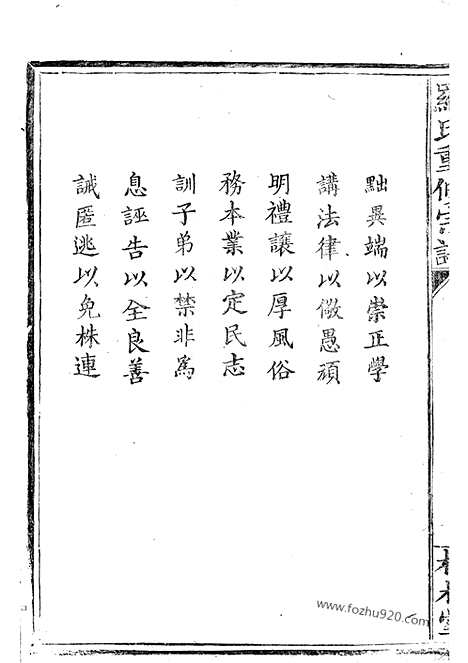 羅氏重修宗譜
黜異端以崇正學
講法律以儆愚頑
明禮讓以厚風俗
務本業以定民志
訓子弟以禁非為
息誣告以全良善
誡匿逃以免株連
www.fozhu920.com